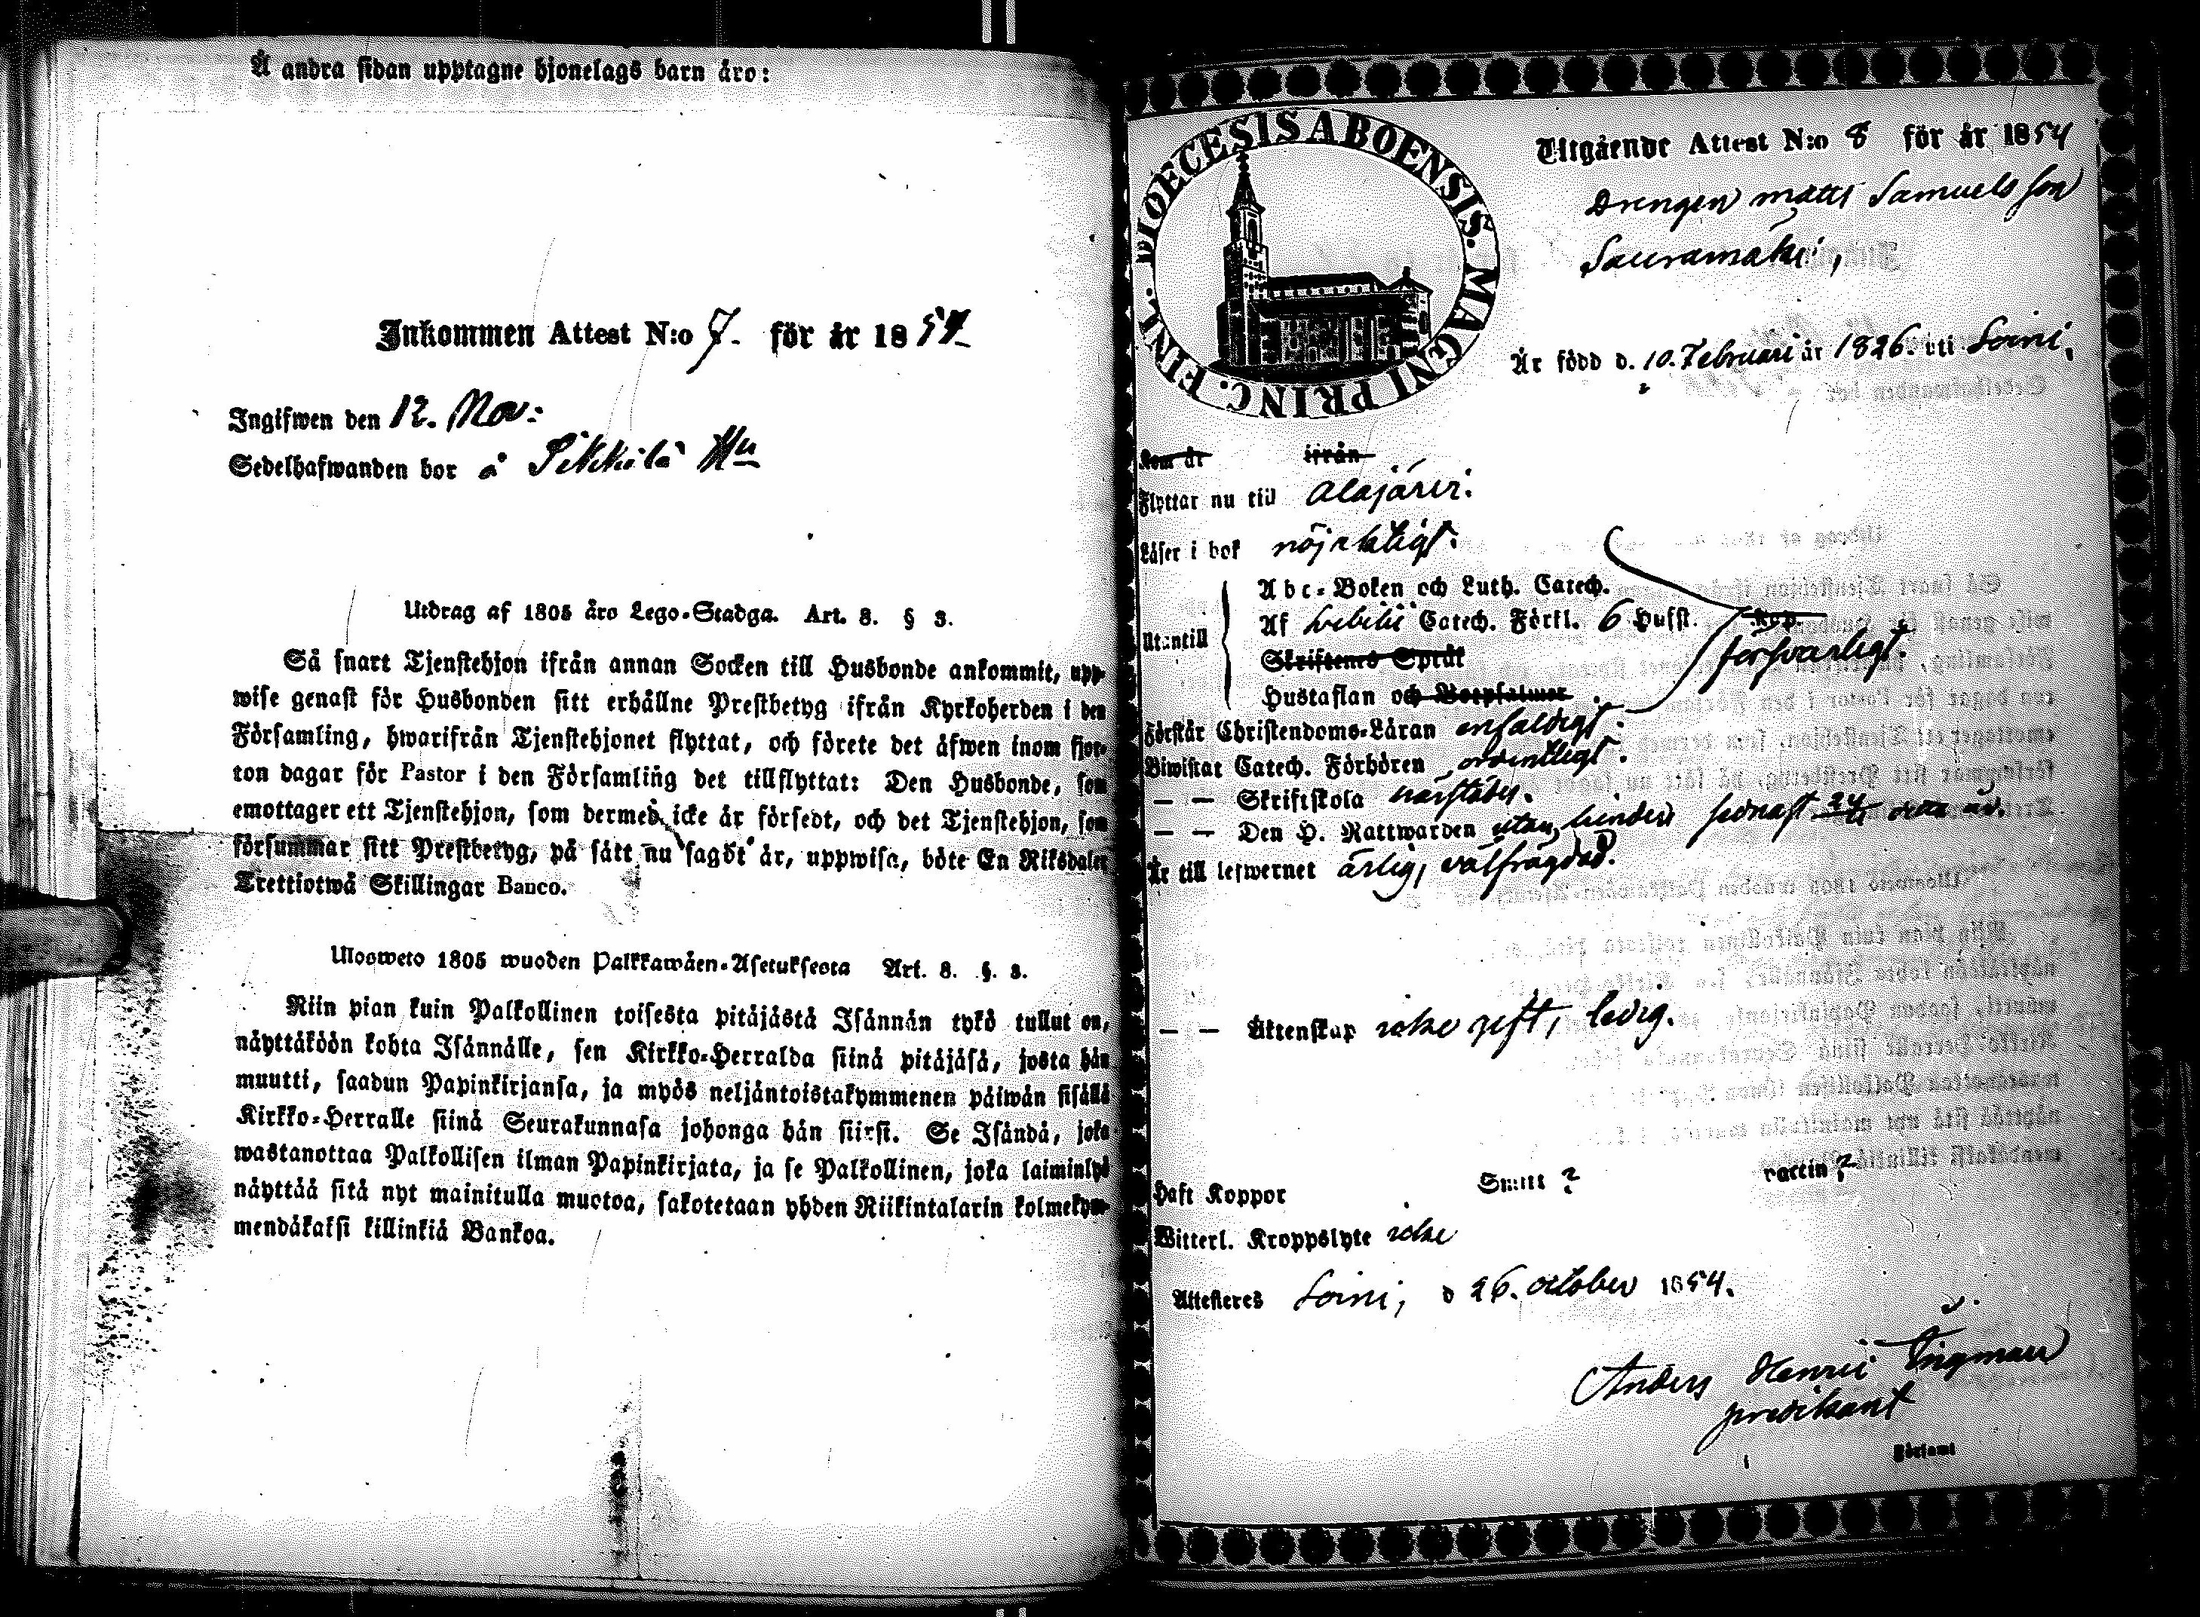 Å andra sidan upptagne hjonelags barn äro:
Inkommen Attest N:o 7. för år 1854
Ingifwen den 12. Nov:
Sedelhafwanden bor å Pikkilä Hn
Utdrag af 1805 åro Lego-Stadga. Art. 8. § 3.
Så snart Tjenstehjon ifrån annan Socken till Husbonde ankommit, upp-
wise genast för Husbonden sitt erhållne Prestbetyg ifrån Kyrkoherden i den
Församling, hwarifrån Tjenstehjonet flyttat, och förete det äfwen inom fjor-
ton dagar för Pastor i den Församling det tillflyttat: Den Husbonde, som
emottager ett Tjenstehjon, som dermed icke är försedt, och det Tjenstehjon, som
försummar sitt Prestbetyg, på sätt nu sagdt är, uppwisa, böte En Riksdaler
Trettiotwå Skillingar Banco.
Ulosweto 1805 wuoden Palkkawäen-Asetuksesta Art. 8. §. 3.
Niin pian kuin Palkollinen toisesta pitäjästä Isännän tykö tullut on,
näyttäköön kohta Isännälle, sen Kirkko-Herralda siinä pitäjäsä, josta hän
muutti, saadun Papinkirjansa, ja myös neljäntoistakymmenen päiwän sisällä
Kirkko-Herralle siinä Seurakunnasa johonga hän siirsi. Se Isändä, joka
wastanottaa Palkollisen ilman Papinkirjata, ja se Palkollinen, joka laiminlyö
näyttää sitä nyt mainitulla muotoa, sakotetaan yhden Riikintalarin kolmekym-
mendäkaksi killinkiä Bankoa.
DIOECESIS ABOENSIS. MAGNI PRINC. FINL.
Utgående Attest N:o 8 för år 1854
Drengen Matts Samuelsson
Sauramäki,
Är född d. 10. Februari år 1826. uti Soini,
Kom år ifrån
Flyttar nu till Alajärvi.
Läser i bok nöjaktigt.
Utantill
Abc-Boken och Luth. Catech.
Af Svebilii Catech. Förkl. 6 Hufst. Kap.
försvarligt.
Skriftenes Språk
Hustaflan och Botpsalmer.
Förstår Christendoms-Läran enfaldigt.
Biwistat Catech. Förhören ordentligt.
— — Skriftskola
— — Den H. Nattwarden utan hinder sednast
Är till lefwernet ärlig, välfrägdad.
— — Äktenskap icke gift, ledig.
Haft Koppor Smitt ? vaccin ?
Witterl. Kroppslyte icke
Attesteras Soini, d 26. October 1854.
Anders Henric Ingman
predikant
Församl